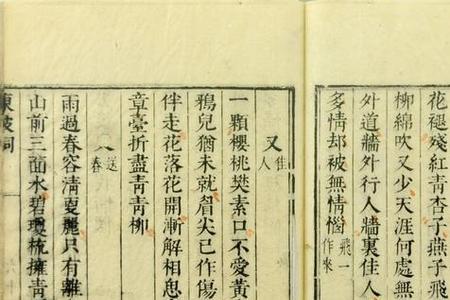 花褪殘紅青杏子燕子飛
柳綿吹又少天涯何處無
外道牆外行人牆裏佳人
多情却被無情惱飛一作來
又佳人
一顆櫻桃樊素口不愛黃
鴉兒猶未就眉尖已作傷
伴走花落花開漸解相思
章臺折盡青青柳
送春
雨過春容清更麗只有離
山前三面水碧瓊梳擁青
東坡詞